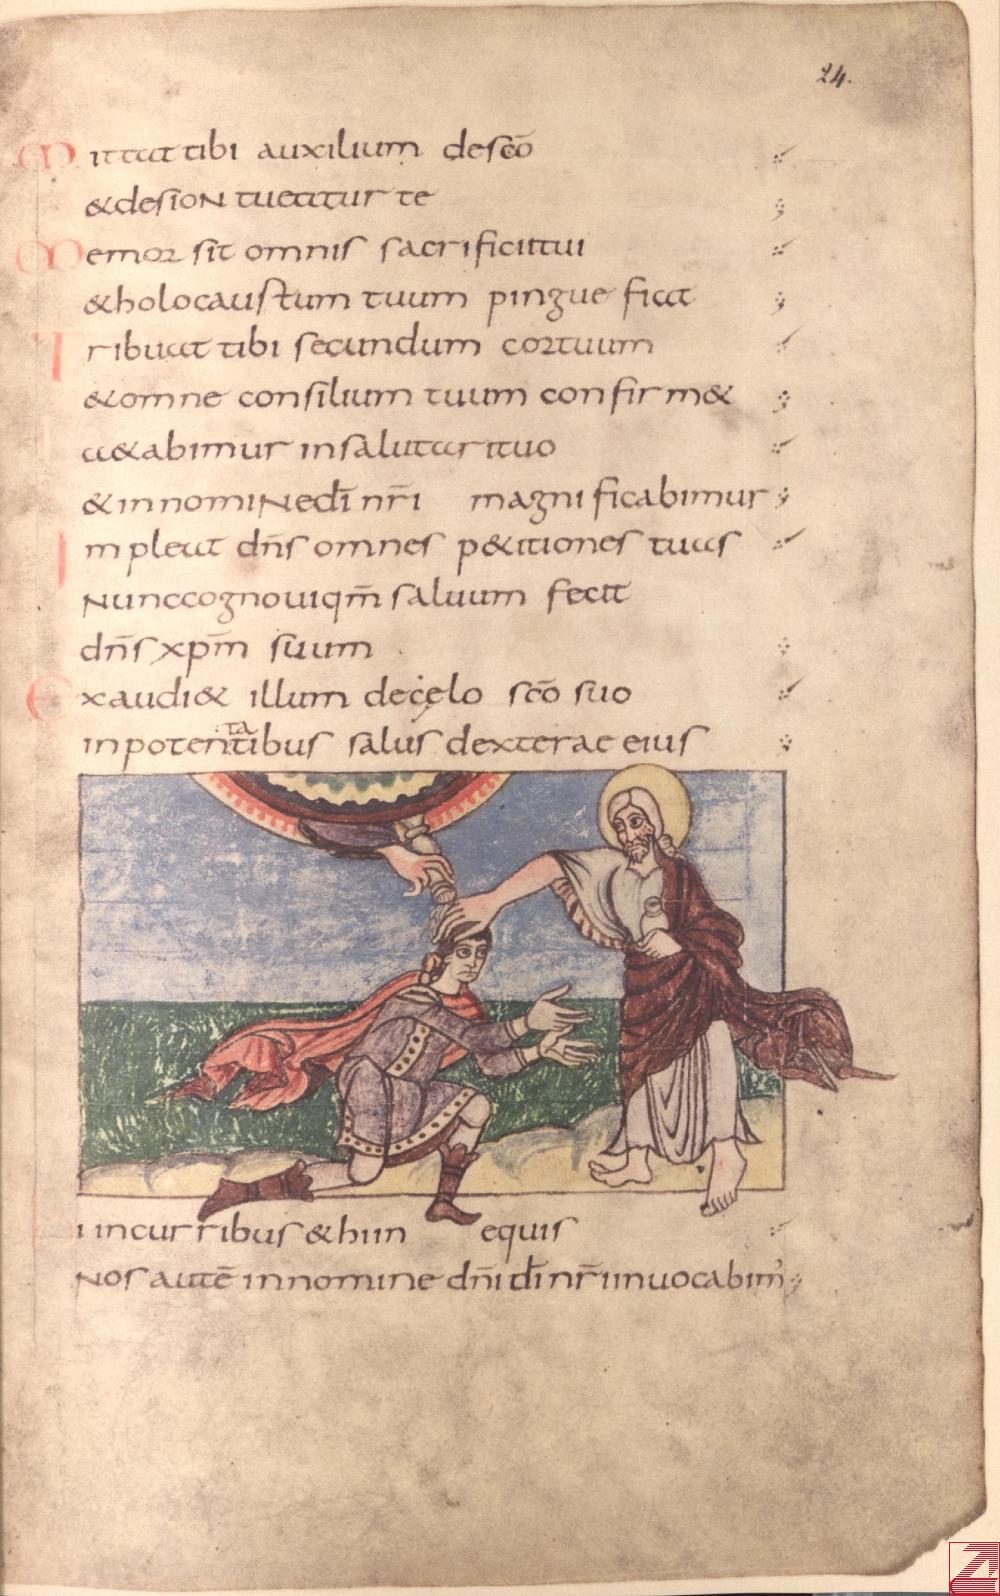 24.
Mittat tibi auxilium desc̄o
&desion tueatur te
Memor sit omnis sacrificii tui
&holocaustum tuum pingue fiat
Tribuat tibi secundum cor tuum
&omne consilium tuum confirm&
a&abimur insalutari tuo
&innomine dī nr̄i magnificabimur
Impleat dn̄s omnes p&itiones tuas
Nunc cognoui qm̄ saluum fecit
dn̄s xpm̄ suum
Exaudi& illum decęlo sc̄o suo
inpotentatibus salus dexterae eius
Hi incurribus &hi in equis
Nos autē innomine dn̄i dī nr̄i inuocabim'